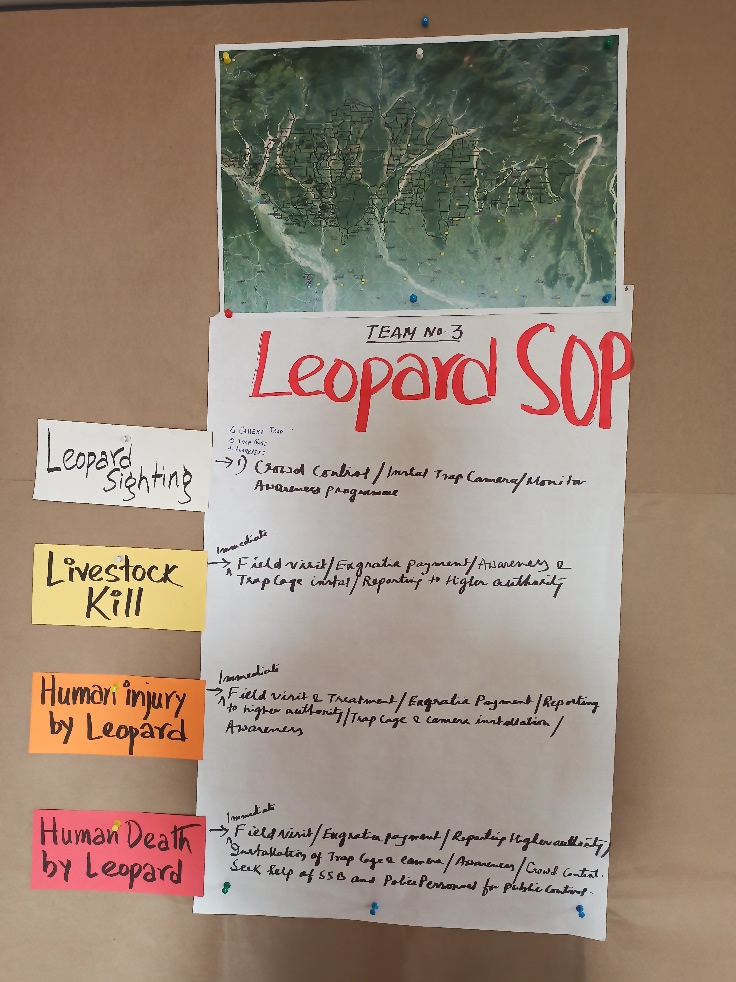 TEAM No 3
Leopard SOP
Leopard
Sighting
→ 1) Crowd Control / Instal Trap Camera/Monitor
Awareness programme
Livestock
Kill
Immediate
→ Field visit/Exgratia payment/Awareness &
Trap Cage instal/Reporting to Higher authority
Human injury
by Leopard
Immediate
→ Field visit & Treatment/Exgratia Payment/Reporting
to higher authority/Trap Cage & Camera installation/
Awareness
Human Death
by Leopard
Immediate
→ Field visit/Exgratia payment/Reporting Higher authority/
Installation of Trap Cage & Camera/Awareness/Crowd Control.
Seek help of SSB and Police Personnel for Public Control.